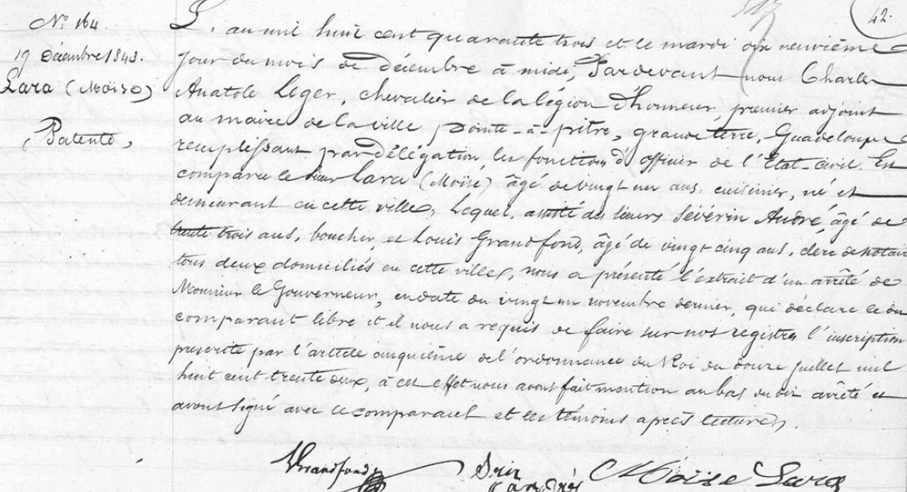 N° 164
19 Décembre 1843.
Lara (Moïse)
Patente,
42.
L'an mil huit cent quarante trois et le mardi dix neuvième
jour du mois de décembre à midi, Pardevant nous Charles
Anatole Leger, chevalier de la légion d'honneur, premier adjoint
au maire de la ville pointe-a-pitre, grande terre, Guadeloupe
remplissant par délégation, les fonctions d'officier de l'Etat-Civil. Est
comparu le sieur Lara (Moïse) âgé de vingt un ans, cuisinier, né et
demeurant en cette ville, Lequel, assisté des sieurs Sévérin André, âgé de
trente trois ans, boucher, et Louis Grandfond, âgé de vingt cinq ans, clerc de notaire
tous deux domiciliés en cette ville, nous a présenté l'extrait d'un arrêté de
Monsieur le Gouverneur, en date du vingt un novembre dernier, qui déclare le dit
comparant libre et il nous a requis de faire sur nos registres l'inscription
prescrite par l'article cinquième de l'ordonnance du Roi du douze juillet mil
huit cent trente deux, à cet effet nous avons fait mention au bas du dit arrêté et
avons signé avec le comparant et les témoins après lecture,
Grandfond Moïse Lara